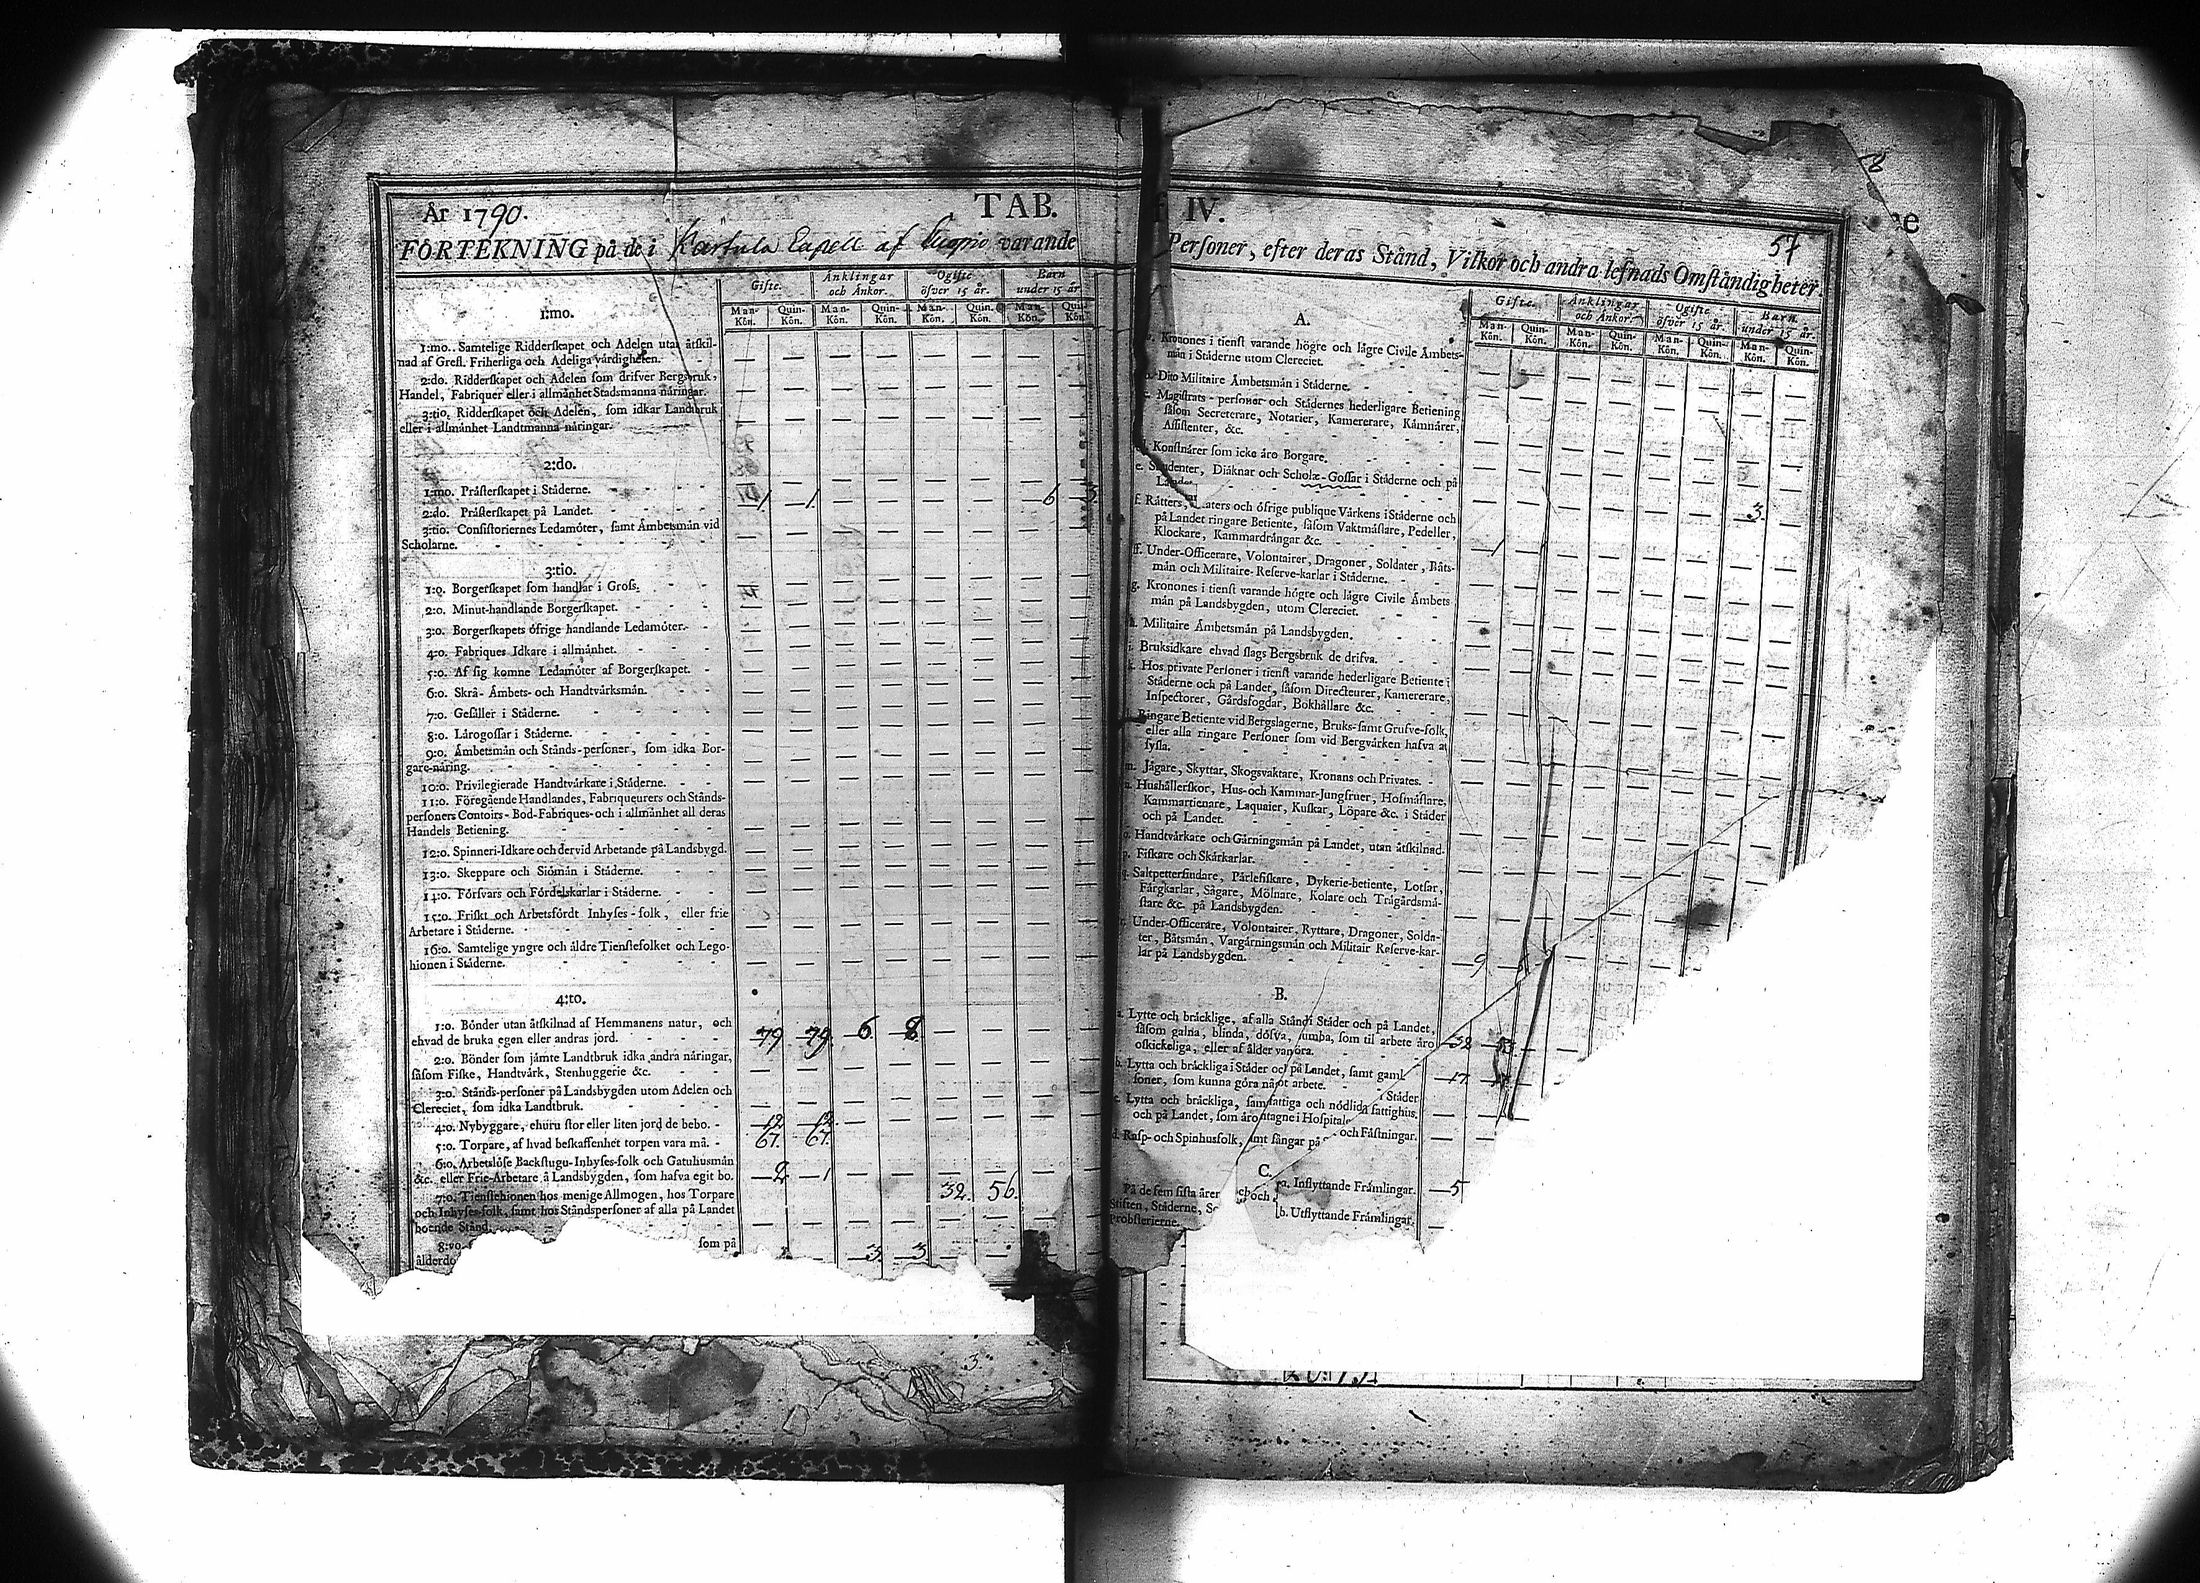 År 1790.
TAB. IV.
57
FÖRTEKNING på de i Karstula Capell af varande Personer, efter deras Stånd, Vilkor och andra lefnads Omståndigheter.
Gifte. Änklingar och Änkor. Ogifte öfver 15 år. Barn under 15 år
Man-Kön. Quin-Kön. Man-Kön. Quin-Kön. Man-Kön. Quin-Kön. Man-Kön. Quin-Kön
1:mo.
1:mo. Samtelige Ridderskapet och Adelen utan åtskil-
nad af Grefl. Friherliga och Adeliga vårdigheten.
2:do. Ridderskapet och Adelen som drifver Bergsbruk,
Handel, Fabriquer eller i allmånhet Stadsmanna nåringar.
3:tio. Ridderskapet och Adelen, som idkar Landtbruk
eller i allmånhet Landtmanna nåringar.
2:do.
1:mo. Pråsterskapet i Ståderne.
2:do. Pråsterskapet på Landet. 1 1 6 3
3:tio. Consistoriernes Ledamöter, samt Åmbetsmån vid
Scholarne.
3:tio.
1:o. Borgerskapet som handlar i Gross.
2:o. Minut-handlande Borgerskapet.
3:o. Borgerskapets öfrige handlande Ledamöter.
4:o. Fabriques Idkare i allmånhet.
5:o. Af sig komne Ledamöter af Borgerskapet.
6:o. Skrå- Åmbets- och Handtvårksmån.
7:o. Gesåller i Ståderne.
8:o. Lårogossar i Ståderne.
9:o. Åmbetsmån och Stånds-personer, som idka Bor-
gare-nåring.
10:o. Privilegierade Handtvårkare i Ståderne.
11:o. Föregående Handlandes, Fabriqueurers och Stånds-
personers Contoirs- Bod-Fabriques- och i allmånhet all deras
Handels Betiening.
12:o. Spinneri-Idkare och dervid Arbetande på Landsbygd.
13:o. Skeppare och Siömån i Ståderne.
14:o. Försvars och Fördelskarlar i Ståderne.
15:o. Friskt och Arbetsfördt Inhyses-folk, eller frie
Arbetare i Ståderne.
16:o. Samtelige yngre och åldre Tienstefolket och Lego-
hionen i Ståderne.
4:to.
1:o. Bönder utan åtskilnad af Hemmanens natur, och
ehvad de bruka egen eller andras jord. 79 79 6 8
2:o. Bönder som jåmte Landtbruk idka andra nåringar,
såsom Fiske, Handtvårk, Stenhuggerie &c.
3:o. Stånds-personer på Landsbygden utom Adelen och
Clereciet, som idka Landtbruk.
4:o. Nybyggare, ehuru stor eller liten jord de bebo. 12 12
5:o. Torpare, af hvad beskaffenhet torpen vara må. 67. 67.
6:o. Arbetslöse Backstugu-Inhyses-folk och Gatuhusmån
&c. eller Frie-Arbetare å Landsbygden, som hafva egit bo. 2 1
7:o. Tienstehionen hos menige Allmogen, hos Torpare
och Inhyses-folk, samt hos Ståndspersoner af alla på Landet
boende Stånd. 32. 56.
8:vo. som på
ålderdo 3. 3.
3
Gifte. Änklingar och Änkor. Ogifte öfver 15 år. Barn under 15 år.
Man-Kön. Quin-Kön. Man-Kön. Quin-Kön. Man-Kön. Quin-Kön. Man-Kön. Quin-Kön.
A.
Kronones i tienst varande högre och lågre Civile Åmbets-
mån i Ståderne utom Clereciet.
Dito Militaire Åmbetsmån i Ståderne.
c. Magistrats-personer och Stådernes hederligare Betiening
såsom Secreterare, Notarier, Kamererare, Kåmnårer,
Assistenter, &c.
Konstnårer som icke åro Borgare.
e. Studenter, Diåknar och Schole-Gossar i Ståderne och på
Landet 3.
f. Råtters, och öfrige publique Vårkens i Ståderne och
på Landet ringare Betiente, såsom Vaktmåstare, Pedeller,
Klockare, Kammardrångar &c. 1
ff. Under-Officerare, Volontairer, Dragoner, Soldater, Båts-
mån och Militaire-Reserve-karlar i Ståderne.
g. Kronones i tienst varande högre och lågre Civile Åmbets
mån på Landsbygden, utom Clereciet.
h. Militaire Åmbetsmån på Landsbygden.
i. Bruksidkare ehvad slags Bergsbruk de drifva.
k. Hos private Personer i tienst varande hederligare Betiente i
Ståderne och på Landet, såsom Directeurer, Kamererare,
Inspectorer, Gårdsfogdar, Bokhållare &c.
l. Ringare Betiente vid Bergslagerne, Bruks-samt Grufve-folk,
eller alla ringare Personer som vid Bergvårken hafva at
syssla.
m. Jågare, Skyttar, Skogsvaktare, Kronans och Privates.
n. Hushållerskor, Hus-och Kammar-Jungfruer, Hofmåstare,
Kammartienare, Laquaier, Kuskar, Löpare &c. i Ståder
och på Landet.
o. Handtvårkare och Gårningsmån på Landet, utan åtskilnad.
p. Fiskare och Skårkarlar.
q. Saltpettersiudare, Pårlefiskare, Dykerie-betiente, Lotsar,
Fårgkarlar, Sågare, Mölnare, Kolare och Trågårdsmå-
stare &c. på Landsbygden.
r. Under-Officerare, Volontairer, Ryttare, Dragoner, Solda-
ter, Båtsmån, Vargårningsmån och Militair Reserve-kar-
lar på Landsbygden. 9
B.
a. Lytte och bråcklige, af alla Stånd i Ståder och på Landet,
såsom galna, blinda, döfva, dumba, som til arbete åro
oskickeliga, eller af ålder vanöra. 32
b. Lytta och bråckliga i Ståder och på Landet, samt gaml
soner, som kunna göra något arbete. 17
c. Lytta och bråckliga, sam fattiga och nödlida i Ståder
och på Landet, som åro intagne i Hospital fattighus.
d. Rasp- och Spinhusfolk, samt fångar på och Fåstningar.
C.
På de fem sista åren och
Stiften, Ståderne,
Probsterierne.
a. Inflyttande Fråmlingar. 5
b. Utflyttande Fråmlingar.